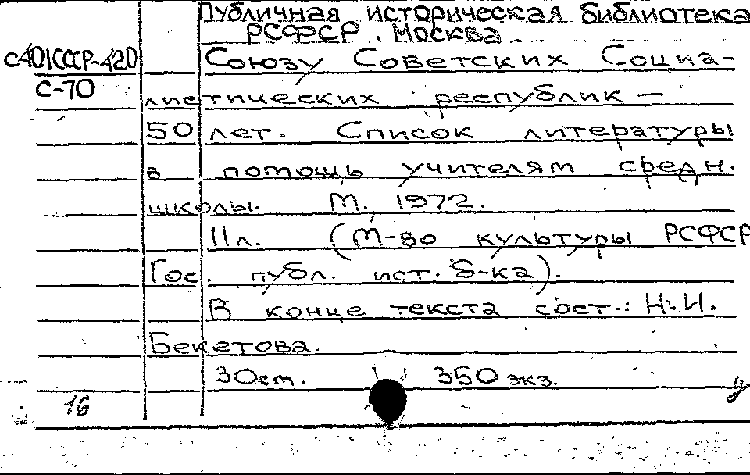 Публичная историческая библиотека
РСФСР. Москва
С401СССР-42D Союзу Советских Социа-
С-70
листических республик –
50 лет. Список литературы
в помощь учителям средн.
школы. М., 1972.
11л. (М-во культуры РСФСР
Гос. публ. ист. б-ка).
В конце текста сост.: Н.И.
Бекетова.
30см. 350 экз.
16